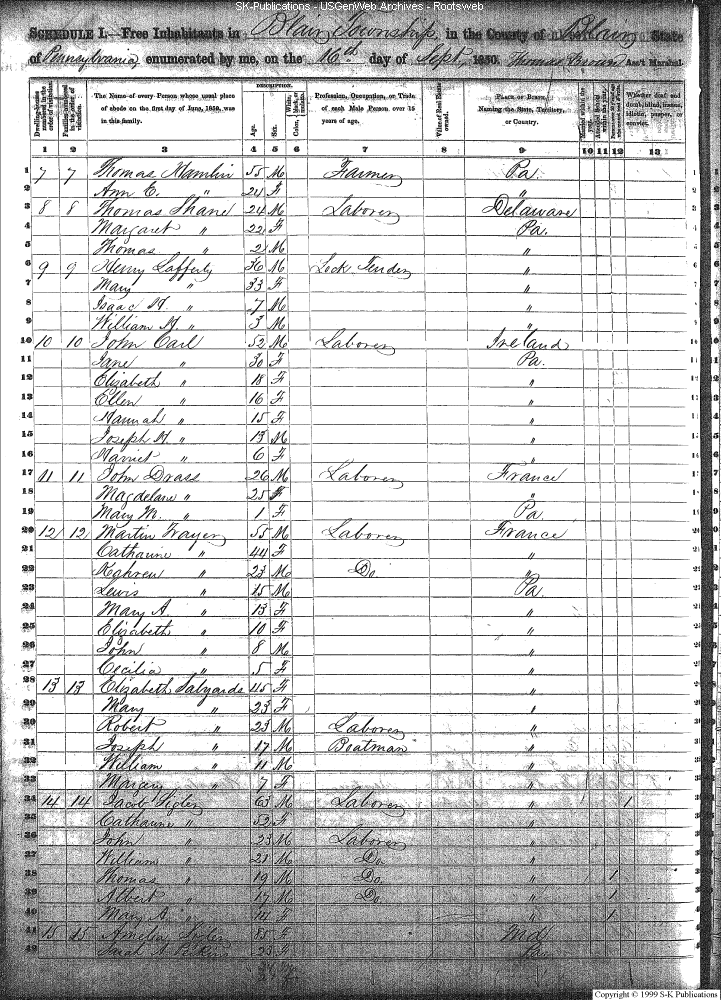 SK-Publications - USGenWeb Archives - Rootsweb
SCHEDULE I.—Free Inhabitants in Blair Township, in the County of Blair State
of Pennsylvania, enumerated by me, on the 16th day of Sept, 1850. Thomas Brown Ass't Marshal.
DESCRIPTION.
The Name of every Person whose usual place of abode on the first day of June, 1850, was in this family.
Age.
Sex.
Profession, Occupation, or Trade of each Male Person over 15 years of age.
Value of Real Estate owned.
PLACE OF BIRTH, Naming the State, Territory, or Country.
Whether deaf and dumb, blind, insane, idiotic, pauper, or convict.
1 2 3 4 5 6 7 8 9 10 11 12 13
1 7 7 Thomas Hamlin 55 M Farmer Pa.
2 Ann E. " 24 F "
3 8 8 Thomas Shane 24 M Laborer Delaware
4 Margaret " 22 F Pa.
5 Thomas " 2 M "
6 9 9 Henry Lafferty 36 M Lock Tender "
7 Mary " 33 F "
8 Isaac H. " 7 M "
9 William H. " 3 M "
10 10 10 John Carl 52 M Laborer Ireland
11 Jane " 30 F Pa.
12 Elizabeth " 18 F "
13 Ellen " 16 F "
14 Hannah " 15 F "
15 Joseph H. " 13 M "
16 Harriet " 6 F "
17 11 11 John Drass 26 M Laborer France
18 Magdelane " 25 F "
19 Mary M. " 1 F Pa.
20 12 12 Martin Frayer 55 M Laborer France
21 Catharine " 44 F "
22 " 23 M Do. "
23 Lewis " 15 M Pa.
24 Mary A. " 13 F "
25 Elizabeth " 10 F "
26 John " 8 M "
27 Cecilia " 5 F "
28 13 13 Elizabeth Salyards 45 F "
29 Mary " 23 F "
30 Robert " 23 M Laborer "
31 Joseph " 17 M Boatman "
32 William " 11 M "
33 Margary " 7 F "
34 14 14 Jacob 63 M Laborer " 1
35 Catharine " 52 F "
36 John " 23 M Laborer "
37 William " 21 M Do. "
38 Thomas " 19 M Do. " 1
39 Albert " 17 M Do. " 1
40 Mary A. " F " 1
41 15 15 85 F Md.
42 Sarah A. 23 F Pa.
Copyright © 1999 S-K Publications